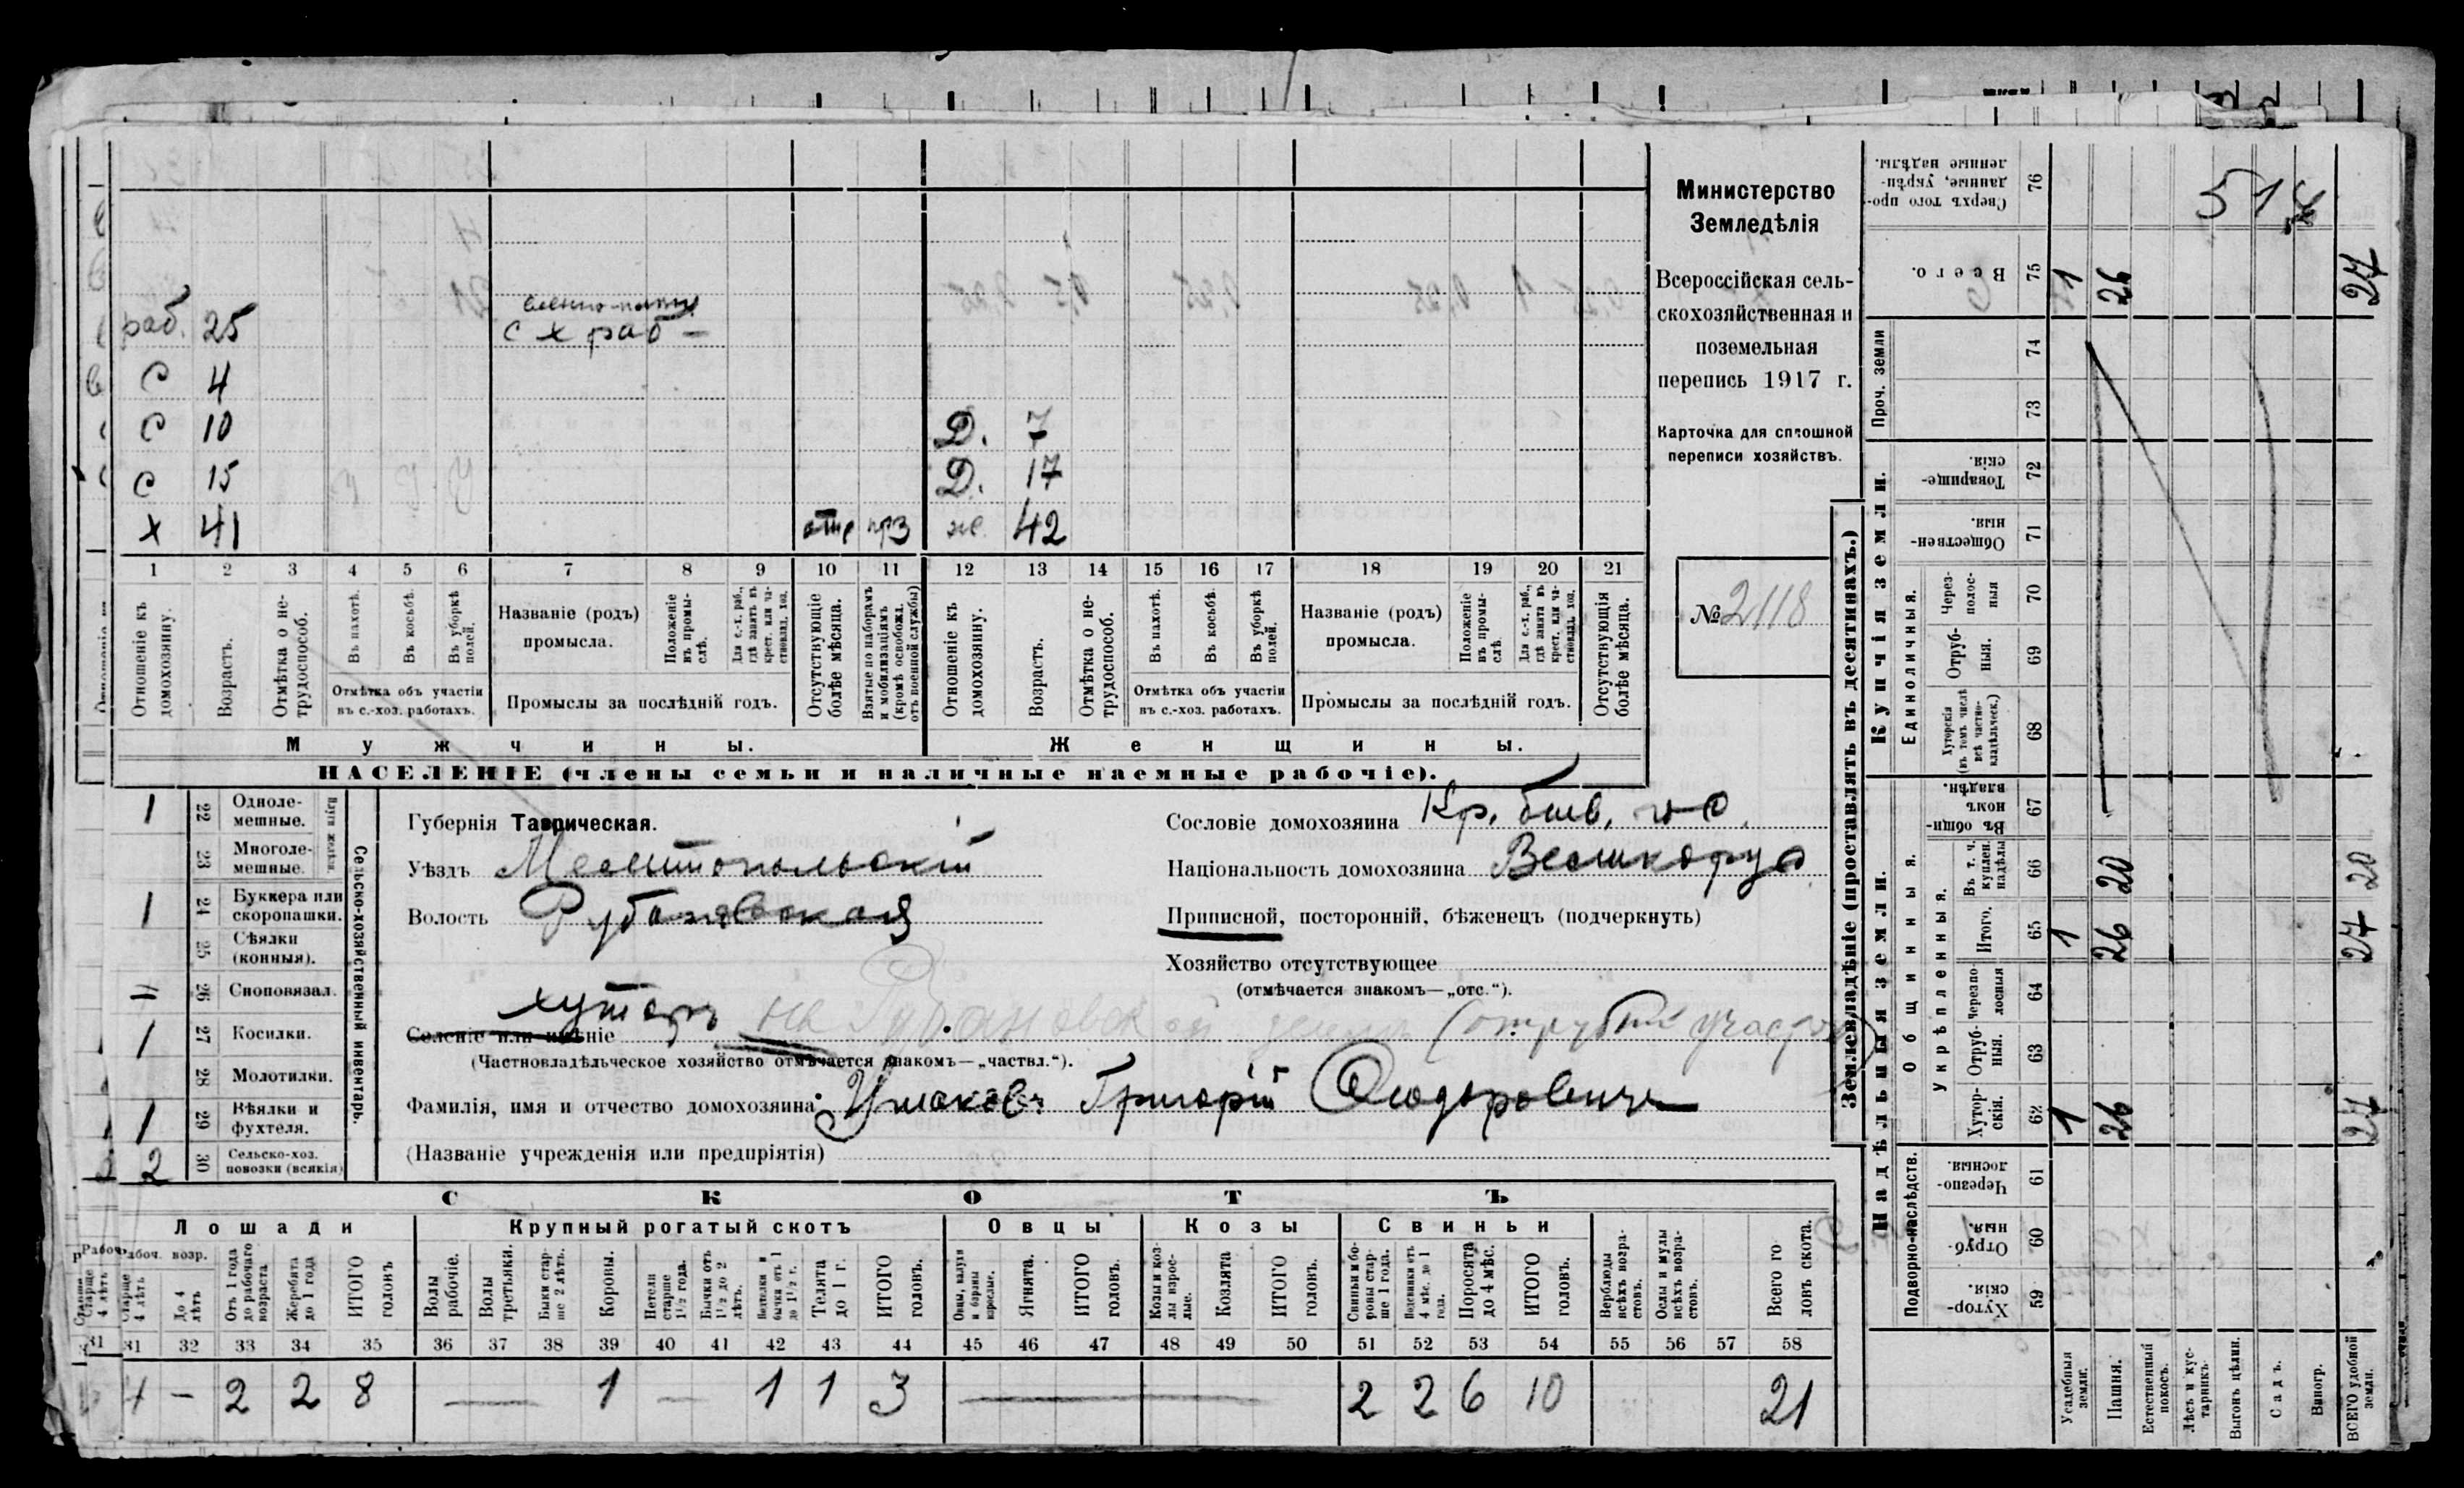 раб. 25 военно-плен.
с х раб –
С 4
С 10 Д. 7
С 15 Д. 17
Х 41 отс прз ж. 42
1 2 3 4 5 6 7 8 9 10 11 12 13 14 15 16 17 18 19 20 21
Отношеніе къ домохозяину.
Возрастъ.
Отмѣтка о нетрудоспособ.
Въ пахотѣ.
Въ косьбѣ.
Въ уборкѣ полей.
Отмѣтка объ участіи
въ с.-хоз. работахъ.
Названіе (родъ)
промысла.
Положеніе въ промыслѣ.
Для с.-х. раб., гдѣ занятъ въ крест. или частновлад. хоз.
Промыслы за послѣдній годъ.
Отсутствующіе болѣе мѣсяца.
Взятые по наборамъ и мобилизаціямъ (кромѣ освобожд. отъ военной службы)
Отношеніе къ домохозяину.
Возрастъ.
Отмѣтка о нетрудоспособ.
Въ пахотѣ.
Въ косьбѣ.
Въ уборкѣ полей.
Отмѣтка объ участіи
въ с.-хоз. работахъ.
Названіе (родъ)
промысла.
Положеніе въ промыслѣ.
Для с.-х. раб., гдѣ занята въ крест. или частновлад. хоз.
Промыслы за послѣдній годъ.
Отсутствующія болѣе мѣсяца.
Мужчины. Женщины.
НАСЕЛЕНІЕ (члены семьи и наличные наемные рабочіе).
Министерство
Земледѣлія
Всероссійская сель-
скохозяйственная и
поземельная
перепись 1917 г.
Карточка для сплошной
переписи хозяйствъ.
№ 2118
Сельско-хозяйственный инвентарь.
1 22 Одноле-
мешные.
23 Многоле-
мешные.
1 24 Буккера или
скоропашки.
25 Сѣялки
(конныя).
26 Сноповязал.
1 27 Косилки.
28 Молотилки.
1 29 Вѣялки и
фухтеля.
2 30 Сельско-хоз.
повозки (всякія)
Губернія Таврическая.
Уѣздъ Мелитопольскій
Волость Рубановская
хуторъ
Селеніе или имѣніе на Рубановской земли (отрубн. участокъ)
(Частновладѣльческое хозяйство отмѣчается знакомъ—„частвл.“).
Фамилія, имя и отчество домохозяина Ушаковъ Григорій Феодоровичъ
(Названіе учрежденія или предпріятія)
Сословіе домохозяина Кр. быв. г-с.
Національность домохозяина Великорус
Приписной, посторонній, бѣженецъ (подчеркнуть)
Хозяйство отсутствующее
(отмѣчается знакомъ—„отс.“).
СКОТЪ
Лошади Крупный рогатый скотъ Овцы Козы Свиньи
Рабоч. возр.
Старше 4 лѣтъ
До 4 лѣтъ
Отъ 1 года до рабочаго возраста
Жеребята до 1 года
ИТОГО головъ
Волы рабочіе.
Волы третьяки.
Быки старше 2 лѣтъ.
Коровы.
Нетели старше 1½ года.
Бычки отъ 1½ до 2 лѣтъ.
Нетелки и бычки отъ 1 до 1½ г.
Телята до 1 г.
ИТОГО головъ.
Овцы, валухи и бараны взрослые.
Ягнята.
ИТОГО головъ.
Козы и козлы взрослые.
Козлята
ИТОГО головъ.
Свиньи и боровы старше 1 года.
Подсвинки отъ 4 мѣс. до 1 года.
Поросята до 4 мѣс.
ИТОГО головъ.
Верблюды всѣхъ возрастовъ.
Ослы и мулы всѣхъ возрастовъ.
Всего головъ скота.
31 32 33 34 35 36 37 38 39 40 41 42 43 44 45 46 47 48 49 50 51 52 53 54 55 56 57 58
4 – 2 2 8 — 1 — 1 1 3 — 2 2 6 10 21
Землевладѣніе (проставлять въ десятинахъ.)
Надѣльныя земли. Купчія земли. Проч. земли
Подворно-наслѣдств.
Общинныя.
Укрѣпленныя.
Единоличныя.
Хуторскія. 59
Отрубныя. 60
Черезполосныя. 61
Хуторскія. 62 1 26 27
Отрубныя. 63
Черезполосныя 64
Итого. 65 1 26 27
Въ т. ч. куплен. надѣлы 66 20 20
Въ общинномъ владѣн. 67
Хуторскія (въ томъ числѣ всѣ частновладѣльческ.) 68
Отрубныя. 69
Черезполосныя 70
Общественныя. 71
Товарищескія. 72
73
74
Всего. 75 1 26 27
Сверхъ того проданные, укрѣпленные надѣлы. 76
51
Усадебныя земли.
Пашня.
Естественный покосъ.
Лѣсъ и кустарникъ.
Выгонъ цѣлин.
Садъ.
Виногр.
ВСЕГО удобной земли.